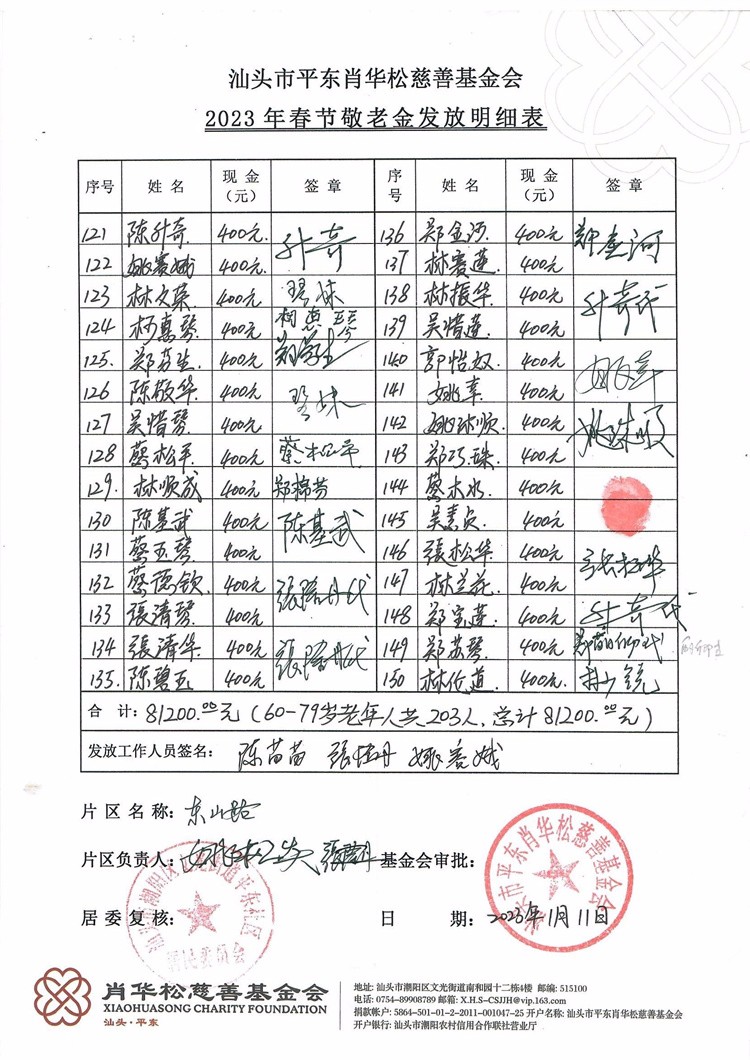 汕头市平东肖华松慈善基金会
2023年春节敬老金发放明细表
序号 姓名 现金（元） 签章 序号 姓名 现金（元） 签章
121 陈升奇 400元 升奇 136 郑金河 400元
122 姚赛娥 400元 137 林赛莲 400元
123 林文荣 400元 138 林振华 400元
124 柯惠琴 400元 139 吴惜莲 400元
125. 郑芬生 400元 140 郭怡奴 400元
126 陈敬华 400元 141 姚幸 400元
127 吴惜琴 400元 142 姚珠顺 400元
128 蔡松平 400元 蔡松平 143 郑巧珠 400元
129. 林顺成 400元 郑棉芬 144 蔡木水 400元
130 陈基武 400元 陈基武 145 吴素贞 400元
131 蔡玉琴 400元 146 張松华 400元
132 蔡德钦 400元 147 林兰花 400元
133 張清琴 400元 148 郑宝莲 400元 升奇代
134 張清华 400元 149 郑苏琴 400元
135. 陈碧玉 400元 150 林伦道 400元
合 计：81200.00元（60-79岁老年人共203人，总计81200.00元）
发放工作人员签名： 陈苗苗 姚赛娥
片区名称：东山路
片区负责人： 基金会审批：
居委复核： 日 期：2023年1月11日
汕头市平东肖华松慈善基金会
居民委员会
肖华松慈善基金会
XIAOHUASONG CHARITY FOUNDATION
汕头·平东
地址: 汕头市潮阳区文光街道南和园十二栋4楼 邮编: 515100
电话: 0754-89908789 邮箱: X.H.S-CSJJH@vip.163.com
捐款帐户: 5864-501-01-2-2011-001047-25 开户名称: 汕头市平东肖华松慈善基金会
开户银行: 汕头市潮阳农村信用合作联社营业厅